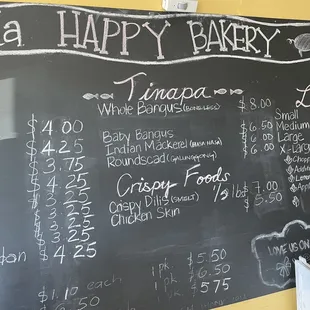 a HAPPY BAKERY
Tinapa
Whole Bangus (BONELESS) $8.00
Baby Bangus $6.50
Indian Mackerel $6.00
Roundscad (GALUNGGONG) $6.00
Crispy Foods
Crispy Dilis (SMELT) 1/2 lbs $7.00
Chicken Skin $5.50
$4.00
$4.25
$3.75
$4.25
$3.25
$3.25
$3.25
$4.25
$1.10 each
1 pk. $5.50
$6.50
$5.75
Small
Medium
Large
X-Large
LOVE US ON